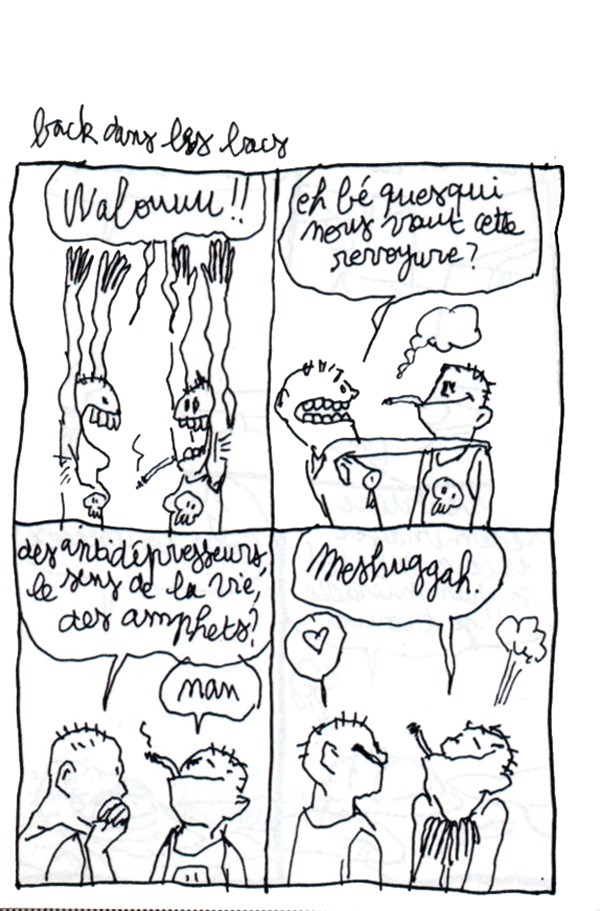 back dans les bacs
Walouuu!!
eh bé quesqui
nous vaut cette
revoyure?
des antidépresseurs,
le sens de la vie,
des amphets?
nan
Meshuggah.